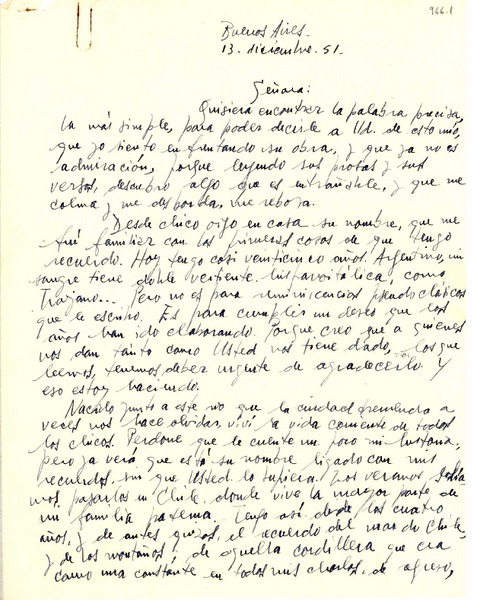 966.1
Buenos Aires.
13. diciembre. 51.
Señora:
Quisiera encontrar la palabra precisa,
la más simple, para poder decirle a Ud. de esto mío,
que yo siento enfrentando su obra, y que ya no es
admiración, porque leyendo sus prosas y sus
versos, descubro algo que es entrañable, y que me
colma y me desborda, me reboza.
Desde chico oigo en casa su nombre, que me
fué familiar con las primeras cosas de que tengo
recuerdo. Hoy tengo casi veinticinco años. Argentino, mi
sangre tiene doble vertiente hispanoitálica, como
Trajano... Pero no es para reminiscencias pseudo clásicas
que le escribo. Es para cumplir un deseo que los
años han ido elaborando. Porque creo que a quienes
nos dan tanto como Usted nos tiene dado, los que
leemos, tenemos deber urgente de agradecerlo. Y
eso estoy haciendo.
Nacido junto a este río que la ciudad tremenda a
veces nos hace olvidar, viví la vida corriente de todos
los chicos. Perdone que le cuente un poco mi historia;
pero ya verá que está su nombre ligado con mis
recuerdos, sin que Usted lo supiera. Los veranos solía-
mos pasarlos en Chile, donde vive la mayor parte de
mi familia paterna. Tengo así, desde los cuatro
años, y de antes quizás, el recuerdo del mar de Chile,
y de las montañas, de aquella cordillera que era
como una constante en todas mis charlas, de regreso,